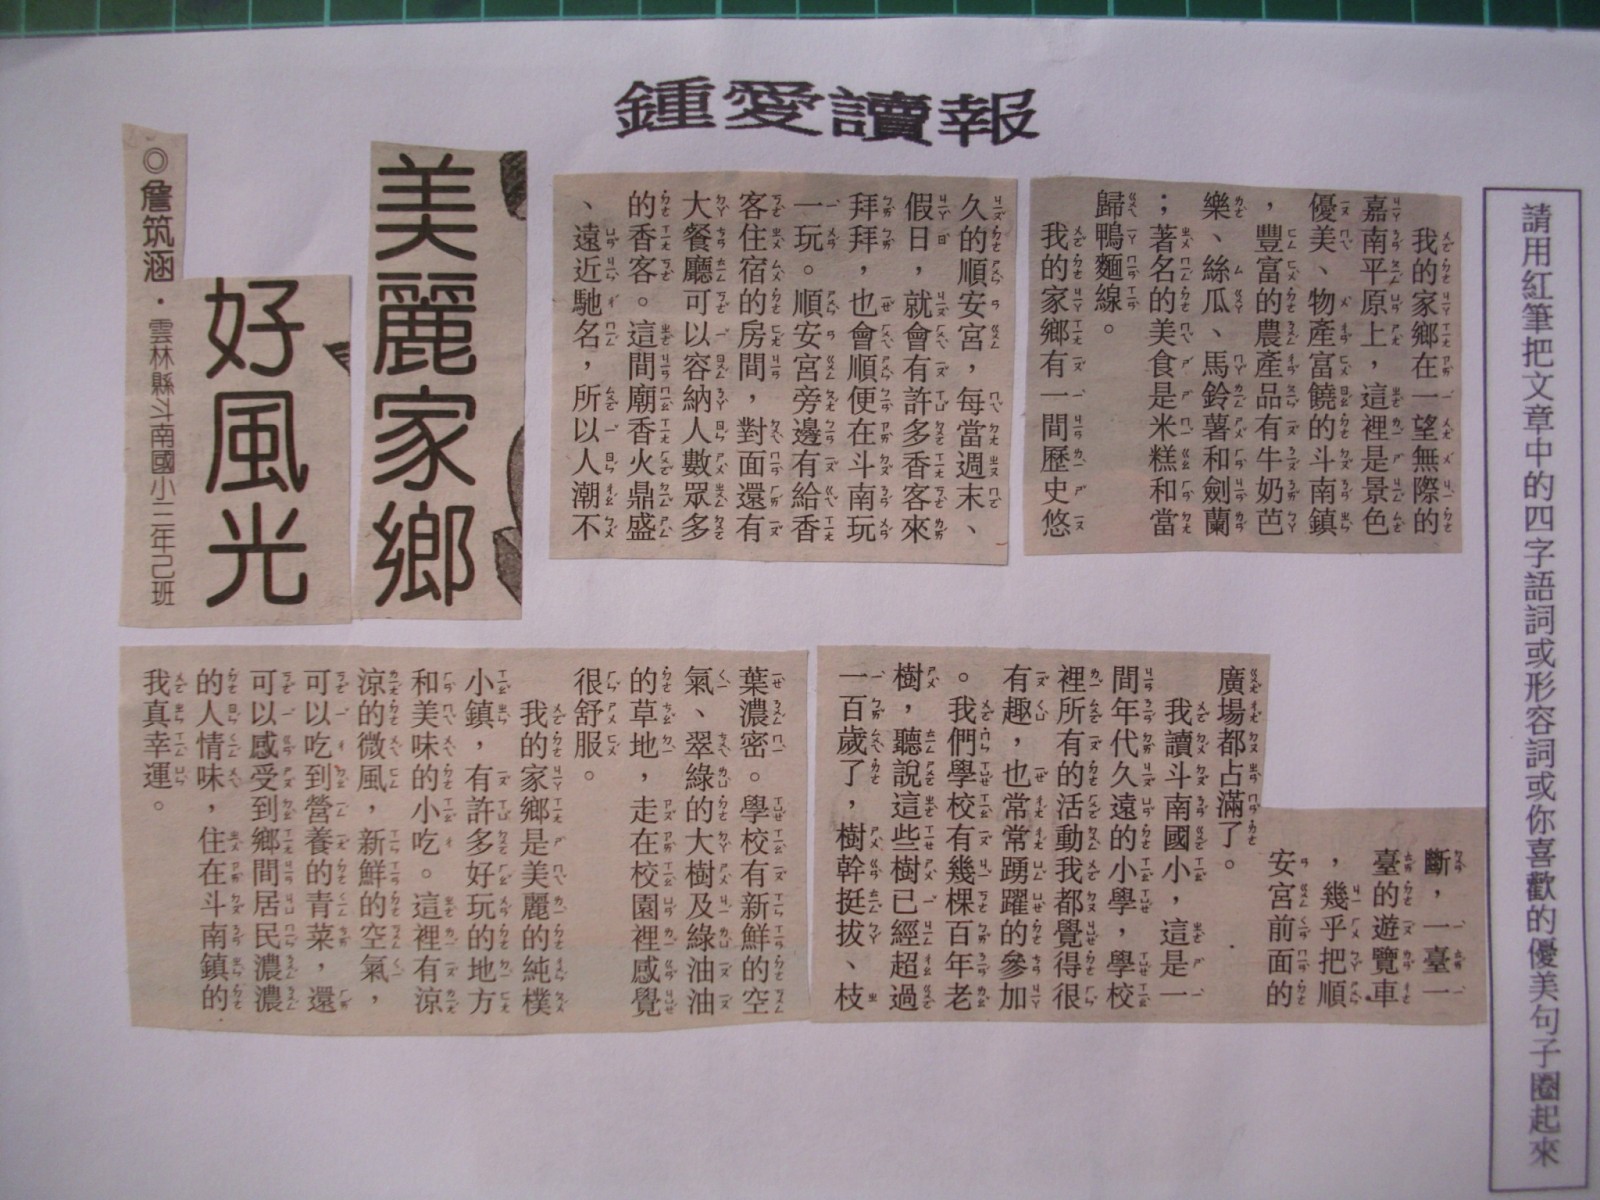 鍾愛讀報
請用紅筆把文章中的四字語詞或形容詞或你喜歡的優美句子圈起來
美麗家鄉
好風光
◎詹筑涵·雲林縣斗南國小二年己班
我的家鄉在一望無際的
嘉南平原上,這裡是景色
優美、物產富饒的斗南鎮
,豐富的農產品有牛奶芭
樂、絲瓜、馬鈴薯和劍蘭
;著名的美食是米糕和當
歸鴨麵線。
我的家鄉有一間歷史悠
久的順安宮,每當週末、
假日,就會有許多香客來
拜拜,也會順便在斗南玩
一玩。順安宮旁邊有給香
客住宿的房間,對面還有
大餐廳可以容納人數眾多
的香客。這間廟香火鼎盛
、遠近馳名,所以人潮不
斷,一臺一
臺的遊覽車
,幾乎把順
安宮前面的
廣場都占滿了。
我讀斗南國小,這是一
間年代久遠的小學,學校
裡所有的活動我都覺得很
有趣,也常常踴躍的參加
。我們學校有幾棵百年老
樹,聽說這些樹已經超過
一百歲了,樹幹挺拔、枝
葉濃密。學校有新鮮的空
氣、翠綠的大樹及綠油油
的草地,走在校園裡感覺
很舒服。
我的家鄉是美麗的純樸
小鎮,有許多好玩的地方
和美味的小吃。這裡有涼
涼的微風,新鮮的空氣,
可以吃到營養的青菜,還
可以感受到鄉間居民濃濃
的人情味,住在斗南鎮的
我真幸運。